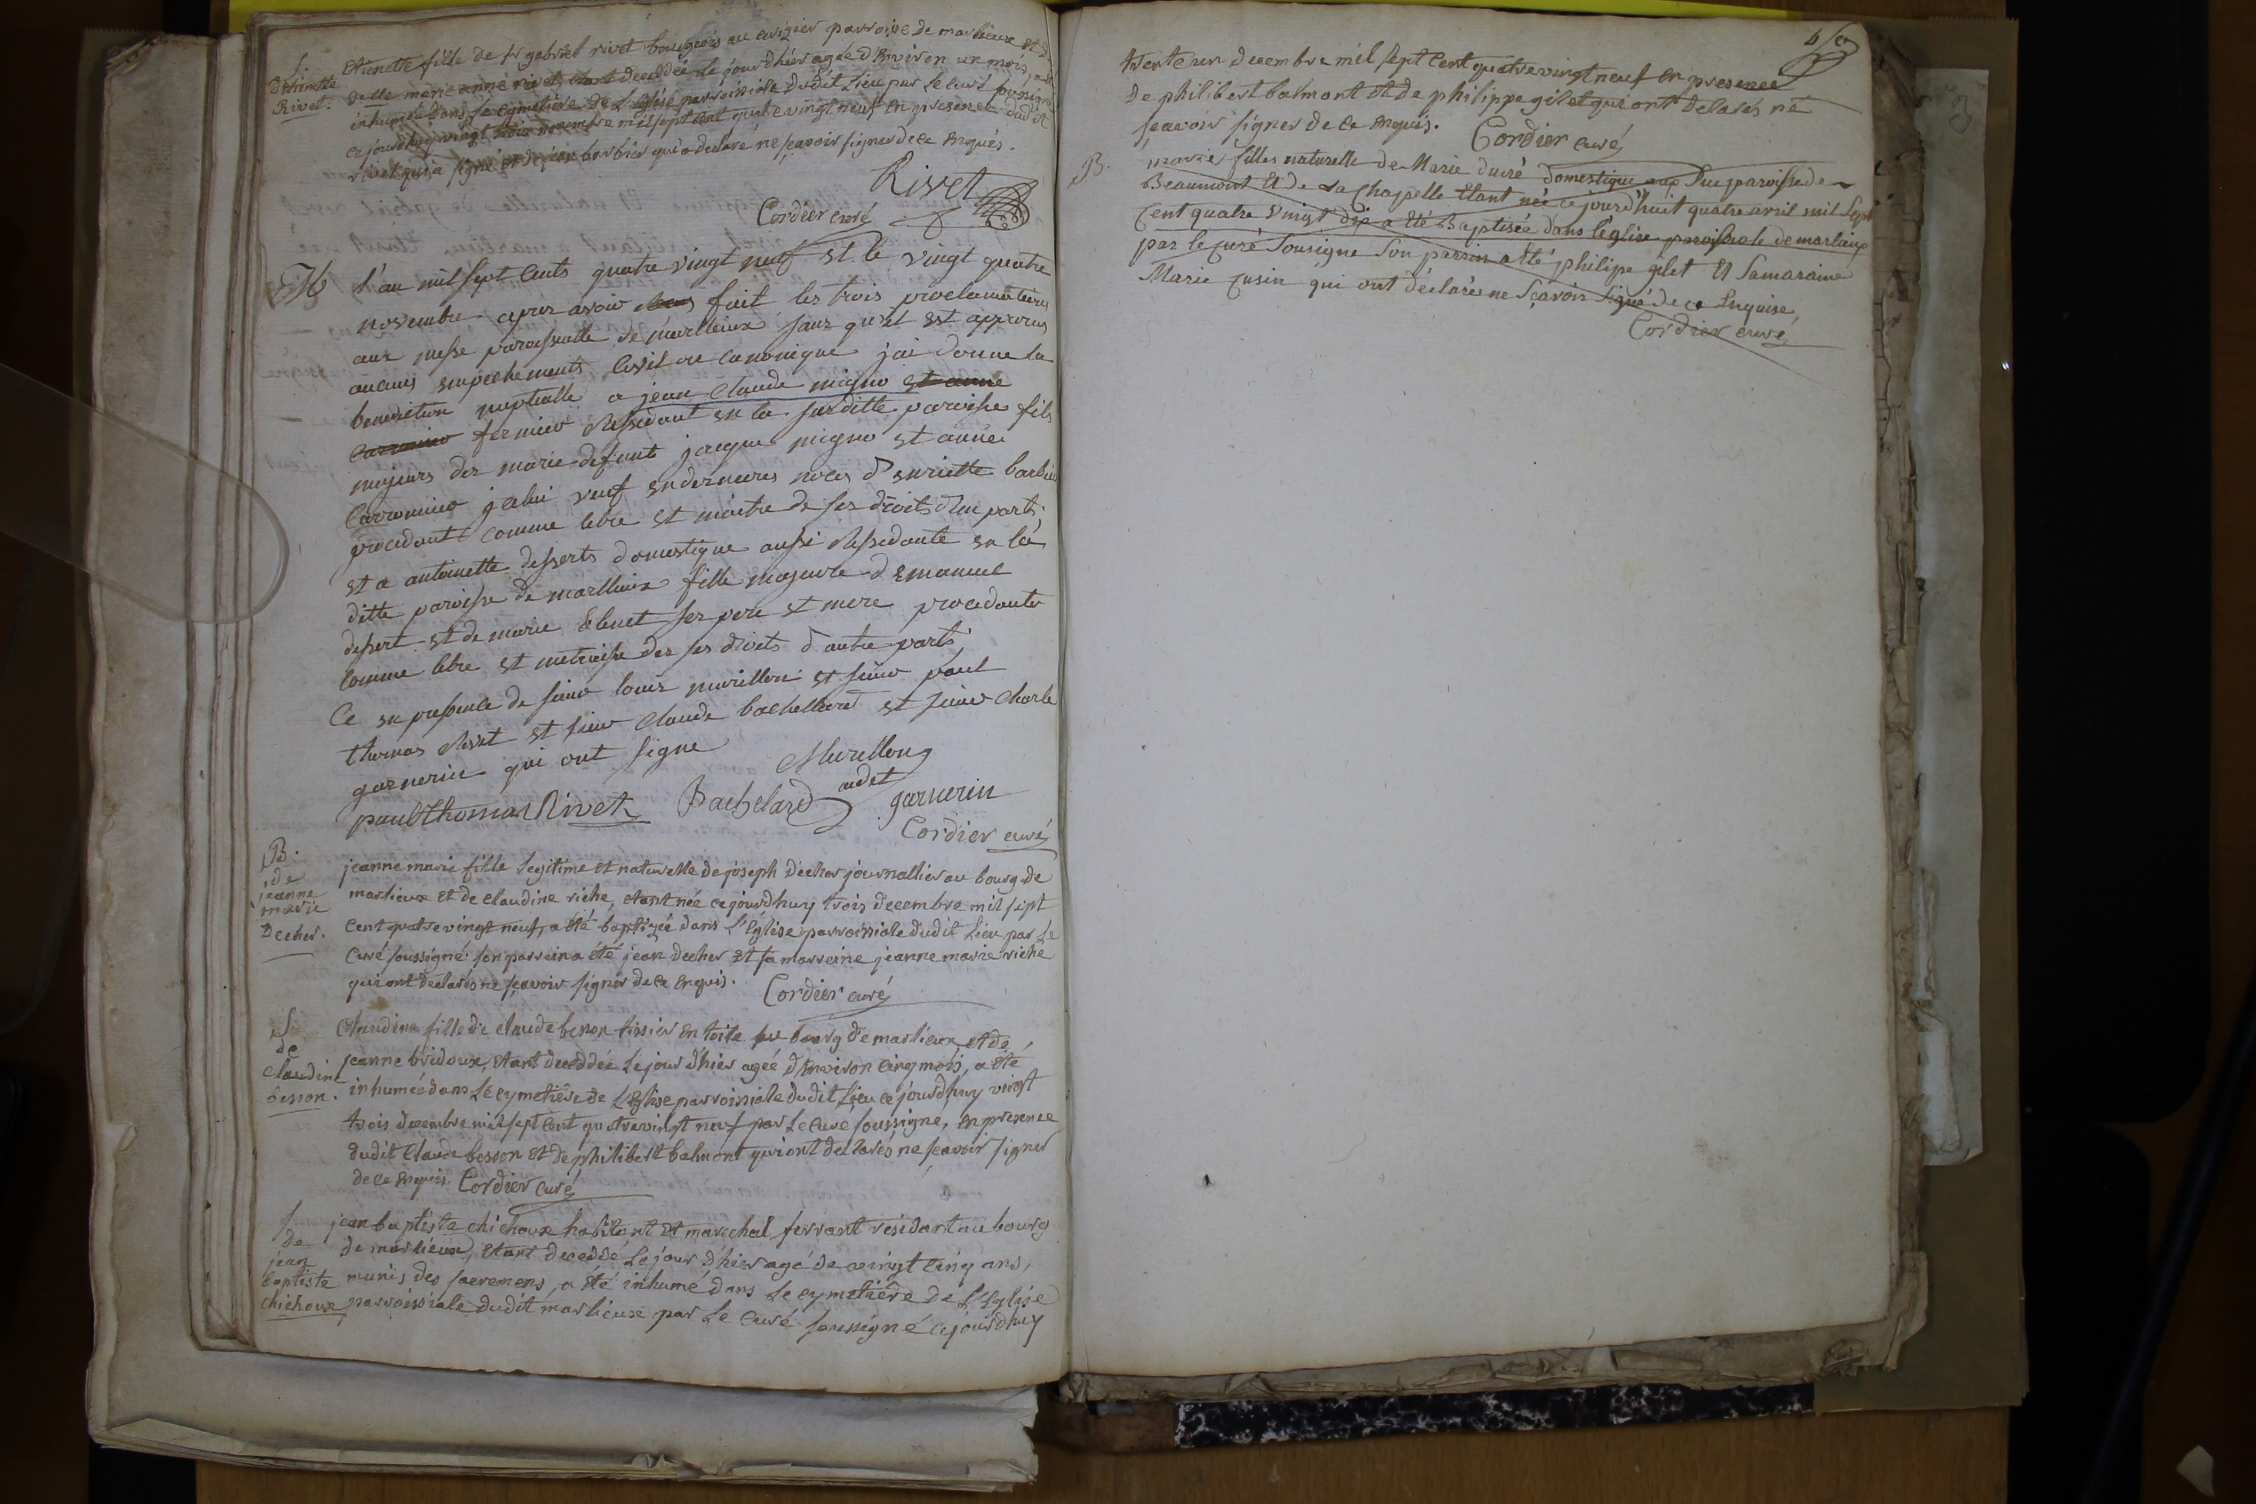 S. Etienette fille de Sr gabriel rivet bourgeois au cerizier parroisse de marlieux et de
Etienette delle marie anne rivet, étant decedée le jour d'hier agée d'Environ un mois, a été
Rivet. inhumée dans le cymetiére de L'Eglise parroissiale dudit Lieu par Le curé soussigné
ce jourdhuy vingt trois novembre mil sept cent quatre vingt neuf En presence dudit Sr
rivet qui a signé et de jean barbier qui a declaré ne sçavoir signer de ce Enquis.
Rivet
Cordier curé
M L'an mil sept cents quatre vingt neuf et le vingt quatre
novembre apres avoir fait les trois proclamations
aux messe paroissialle de marllieux sans qu'il est apparus
aucuns empechements Civil ou canonique jai donne la
benediction nuptialle a jean claude migno et anne
Carromier fermier Ressidant en la susditte paroisse fils
majeurs des marie defunts jacque migno et anne
Carromier jcelui veuf en dernieres noces d'enriette barbier
procedant comme libre et maitre de ses droits d'une parts.
et a antoinette desserts domestique aussi Ressidante en la
ditte paroisse de marllieux fille majeure d'Emanuel
dessert et de marie Blenet ses pere et mere procedante
comme libre et metraisse des ses droits d'autre parts
Ce en presence de sieur louis murillon et sieur paul
thomas Rivet et sieur claude bachellard et sieur charle
garnerin qui ont signe
Murillon
cadet
paul thomas Rivet Bachelard garnerin
Cordier curé
B. jeanne marie fille legitime et naturelle de joseph decher journallier au bourg de
de
jeanne marlieux et de claudine riche, étant née ce jourdhuy trois decembre mil sept
marie
Decher. cent quatre vingt neuf, a été baptizée dans L'Eglise parroissiale dudit Lieu par Le
Curé soussigné: son parrein a été jean decher et sa marreine jeanne marie riche
qui ont declarés ne sçavoir signer de ce enquis. Cordier curé
S. Claudine fille de claude besson tissier en toile au bourg de marlieux et de
de
Claudine jeanne bridoux, étant decedée Le jour d'hier agée d'Environ cinq mois, a été
besson. inhumée dans Le cymetiére de L'Eglise parroissiale dudit Lieu ce jourdhuy vingt
trois decembre mil sept cent quatre vingt neuf par Le curé soussigné, en presence
dudit claude besson et de philibert balmont qui ont declarés ne sçavoir signer
de ce enquis. Cordier curé
S. jean baptiste chichoux habitant et marechal ferrant residant au bourg
de de marlieux, étant decedé Le jour d'hier agé de vingt cinq ans,
jean
baptiste munis des sacremens, a été inhumé dans Le cymetiére de L'Eglise
chichoux parroissiale dudit marlieux par Le curé soussigné ce jourdhuy
trente un decembre mil sept cent quatre vingt neuf En presence
de philibert balmont et de philippe gilet qui ont declarés ne
sçavoir signer de ce enquis. Cordier curé
B. marie filles naturelle de Marie duvré domestique aux paroisse de
Beaumont et de La Chapelle étant née ce jourd'huit quatre avril mil sept
Cent quatre vingt dix a été Baptisée dans l'église paroissiale de marlieux
par le curé Sousigne Son parrin a été philipe gilet Et Samaraine
Marie Cusin qui ont déclarée ne Sçavoir signé de ce Enquise,
Cordier curé